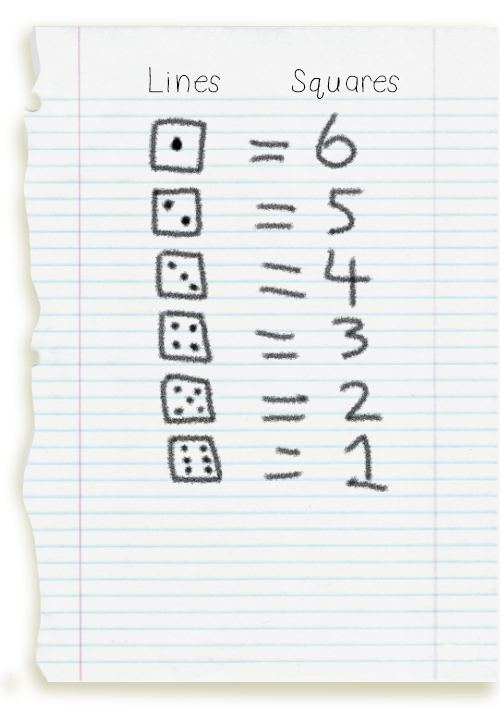 Lines Squares
= 6
= 5
= 4
= 3
= 2
= 1